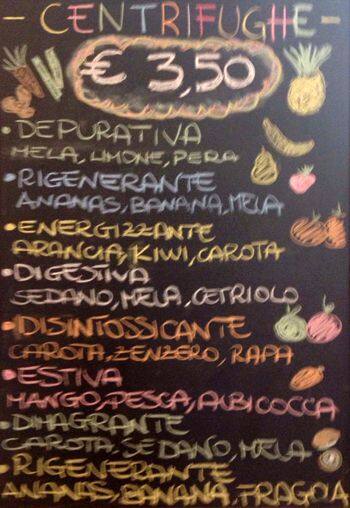 - CENTRIFUGHE -
€ 3,50
• DEPURATIVA
MELA, LIMONE, PERA
• RIGENERANTE
ANANAS, BANANA, MELA
• ENERGIZZANTE
ARANCIA, KIWI, CAROTA
• DIGESTIVA
SEDANO, MELA, CETRIOLO
• DISINTOSSICANTE
CAROTA, ZENZERO, RAPA
• ESTIVA
MANGO, PESCA, ALBICOCCA
• DIMAGRANTE
CAROTA, SEDANO, MELA
• RIGENERANTE
ANANAS, BANANA, FRAGOA